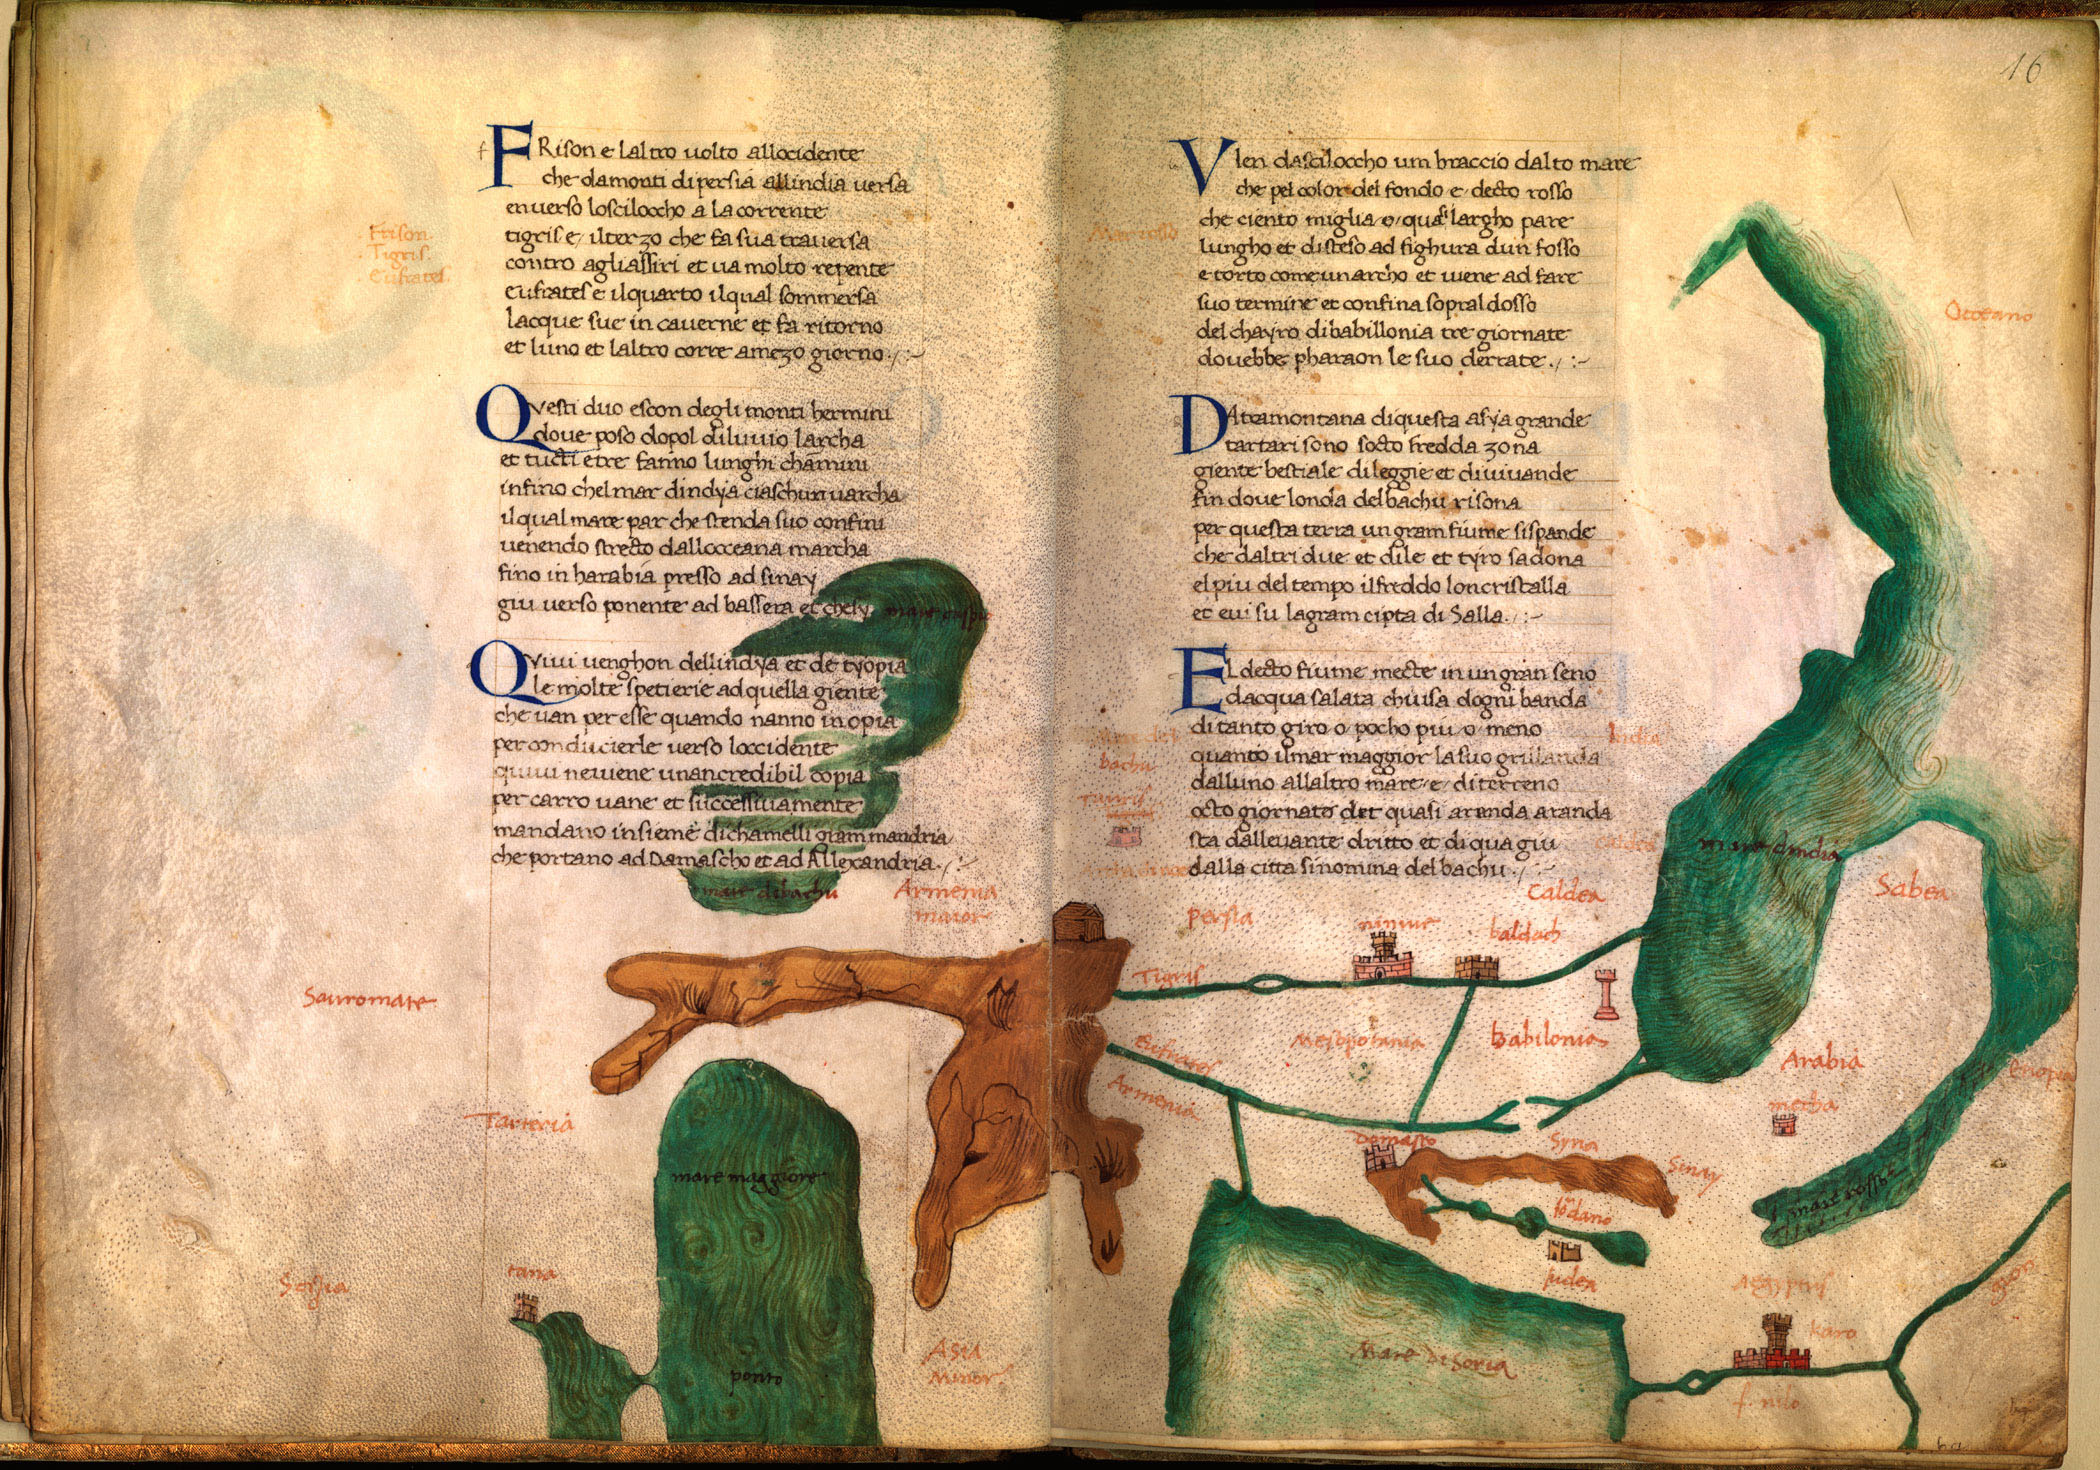 FRison e laltro uolto allocidente
che da monti di persia allindia versa
enuerso loscilocho a la corrente
tigris e, ilterzo che fa sua trauersa
contro agliassiri et ua molto repente
eufrates e ilquarto ilqual sommersa
lacque sue in cauerne et fa ritorno
et luno et laltro corre amezo giorno
.frison.
.Tigris.
.Eufrates.
QVesti duo escon degli monti hermini
doue poso dopol diluuio larcha
et tucti etre fanno lunghi chamini
infino chelmar dindya ciaschun uarcha
ilqual mare par che stenda suo confini
uenendo strecto dallocceana marcha
fino in harabia presso ad sinay
giu uerso ponente ad bassera et chesy
QViui uenghon dellindya et de tyopia
le molte spetierie ad quella giente
che uan per esse quando nanno inopia
per conducierle uerso loccidente
quiui neuiene unancredibil copia
per carro uane et successiuamente
mandano insieme dichamelli gram mandria
che portano ad Damascho et ad Allexandria
mare caspio
mare dibachu
Armenia
maior
Sauromate
Tarteria
mare maggiore
Seysia
tana
ponto
Asia
Minor
16
VIen dascilocho um braccio dalto mare
che pel color del fondo e, decto rosso
che ciento miglia, o, quasi largho pare
lungho et disteso ad fighura dun fosso
e torto come un archo et uiene ad fare
suo termine et confina sopral dosso
del chayro dibabillonia tre giornate
douebbe pharaon le suo derrate
Mar rosso
Occeano
DAtramontana diquesta asya grande
tartari sono socto fredda zona
giente bestiale dileggie et diuiuande
fin doue londa delbachu risona
per questa terra un gram fiume sispande
che daltri due et dile et tyro sadona
el piu del tempo ilfreddo loncristalla
et eui su lagram cipta di Salla
EL decto fiume mecte in un gran seno
dacqua salata chiusa dogni banda
di tanto giro o, pocho piu, o, meno
quanto ilmar maggior la suo grillanda
dalluno allaltro mare, e, diterreno
octo giornate det quasi aranda aranda
sta dalleuante dritto et di qua giu
dalla citta sinomina del bachu
bachu
India
mare dindia
Sabea
Caldea
persia
niniue
baldach
Tigris
Mesopotania
Babilonia
Eufrates
Armenia
Arabia
mecha
Etiopia
Domasco
Syria
Sinay
mare rosso
Iordano
Iudea
Mare diSoria
Aegyptus
Karo
gyon
f. nilo